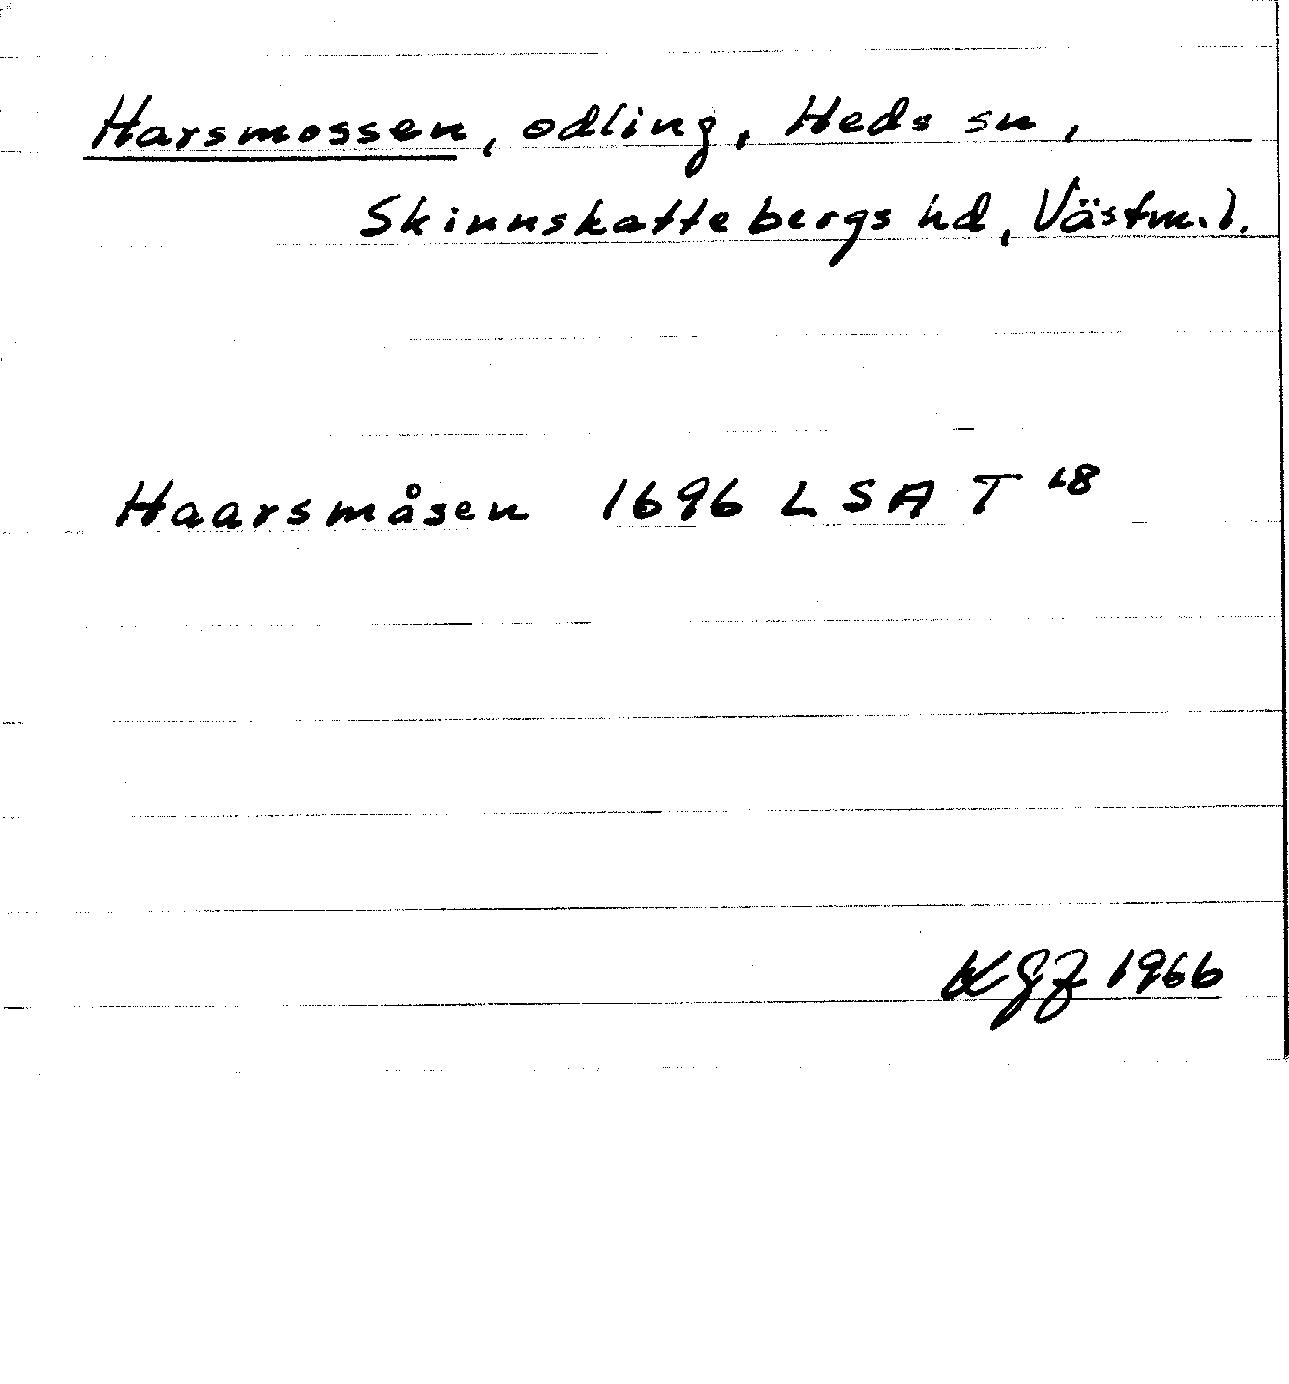 Harsmossen, odling, Heds sn,
Skinnskattebergs hd, Västm.l.
Haarsmåsen 1696 LSA T 18
KGJ 1966